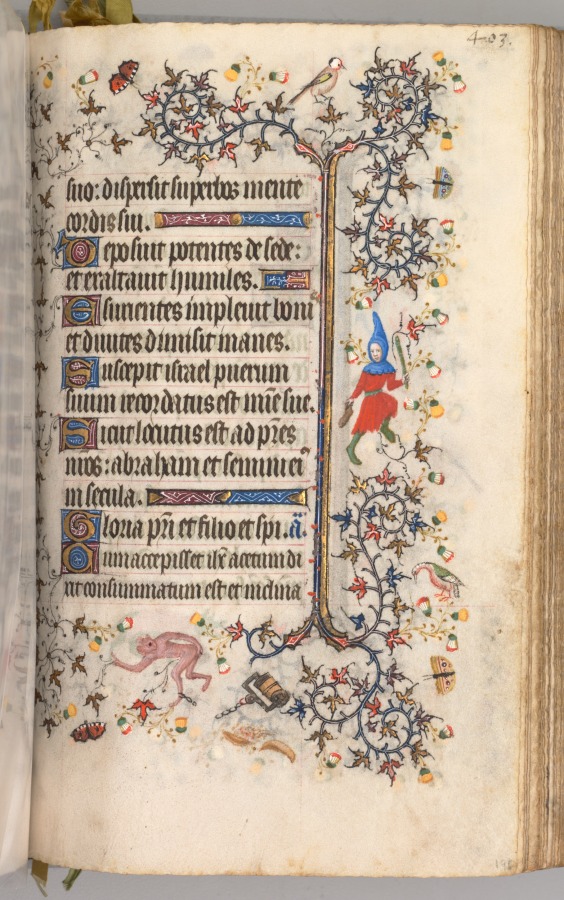 403.
suo: dispersit superbos mente
cordis sui.
Deposuit potentes de sede:
et exaltauit humiles.
Esurientes impleuit boni
et diuites dimisit inanes.
Suscepit israel puerum
suum recordatus est mīe sue.
Sicut locutus est ad pr̄es
nr̄os: abraham et semini eiꝰ
in secula.
Gloria pr̄i et filio et spi. añ.
Cum accepisset ihc̄ acetum di
xit consummatum est et inclina